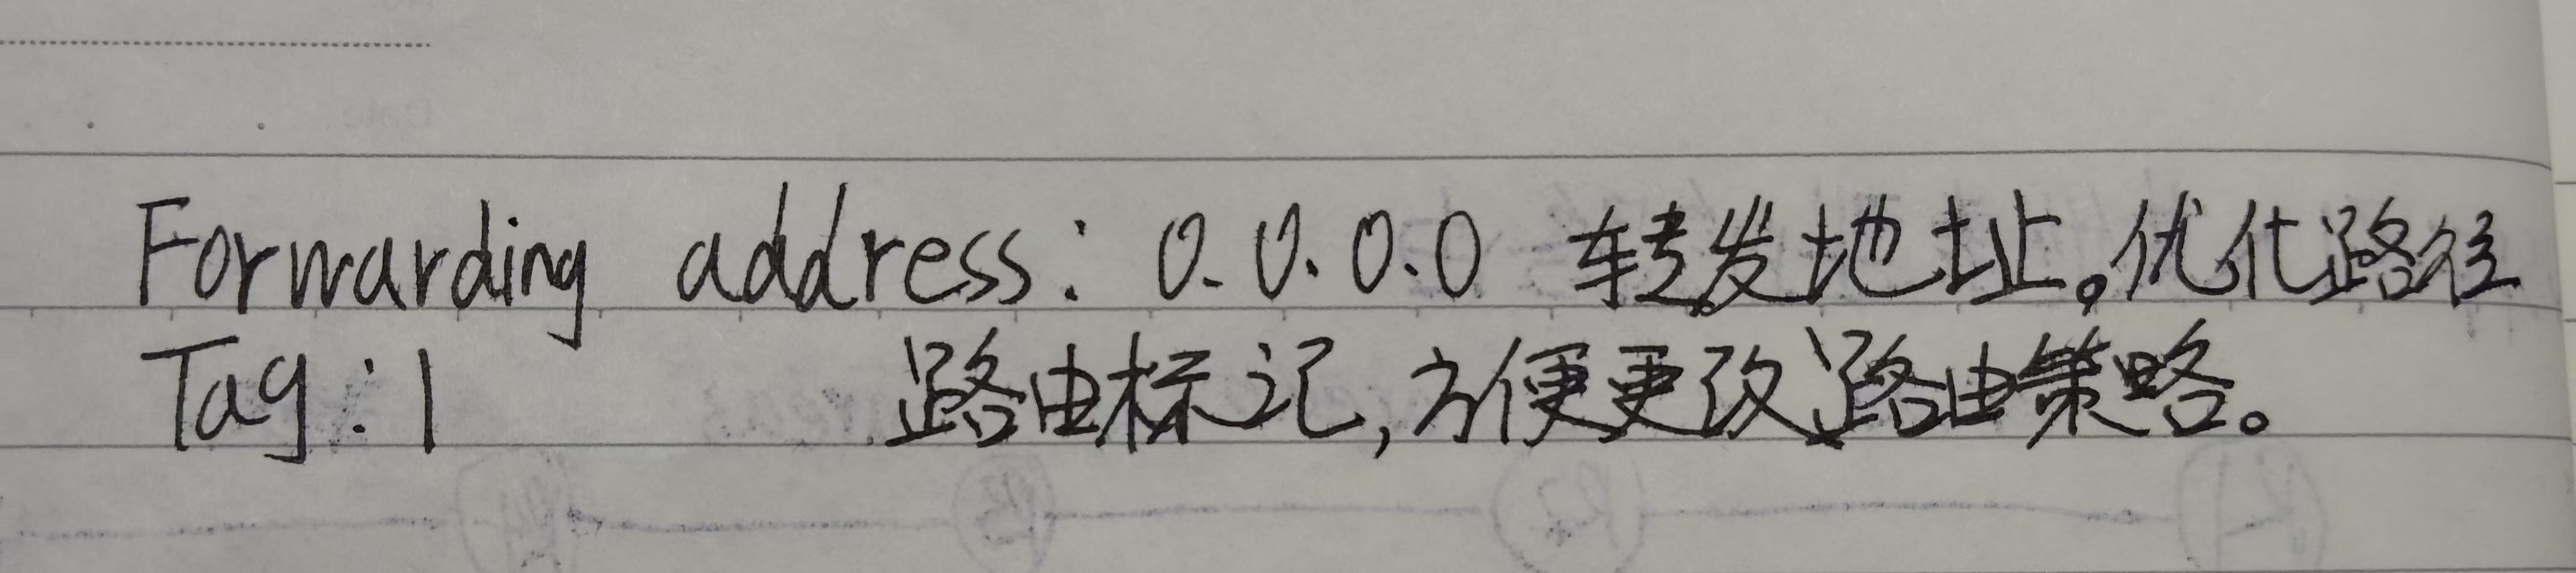 Forwarding address: 0.0.0.0 转发地址。优化路径
Tag: 1 路由标记,方便更改路由策略。